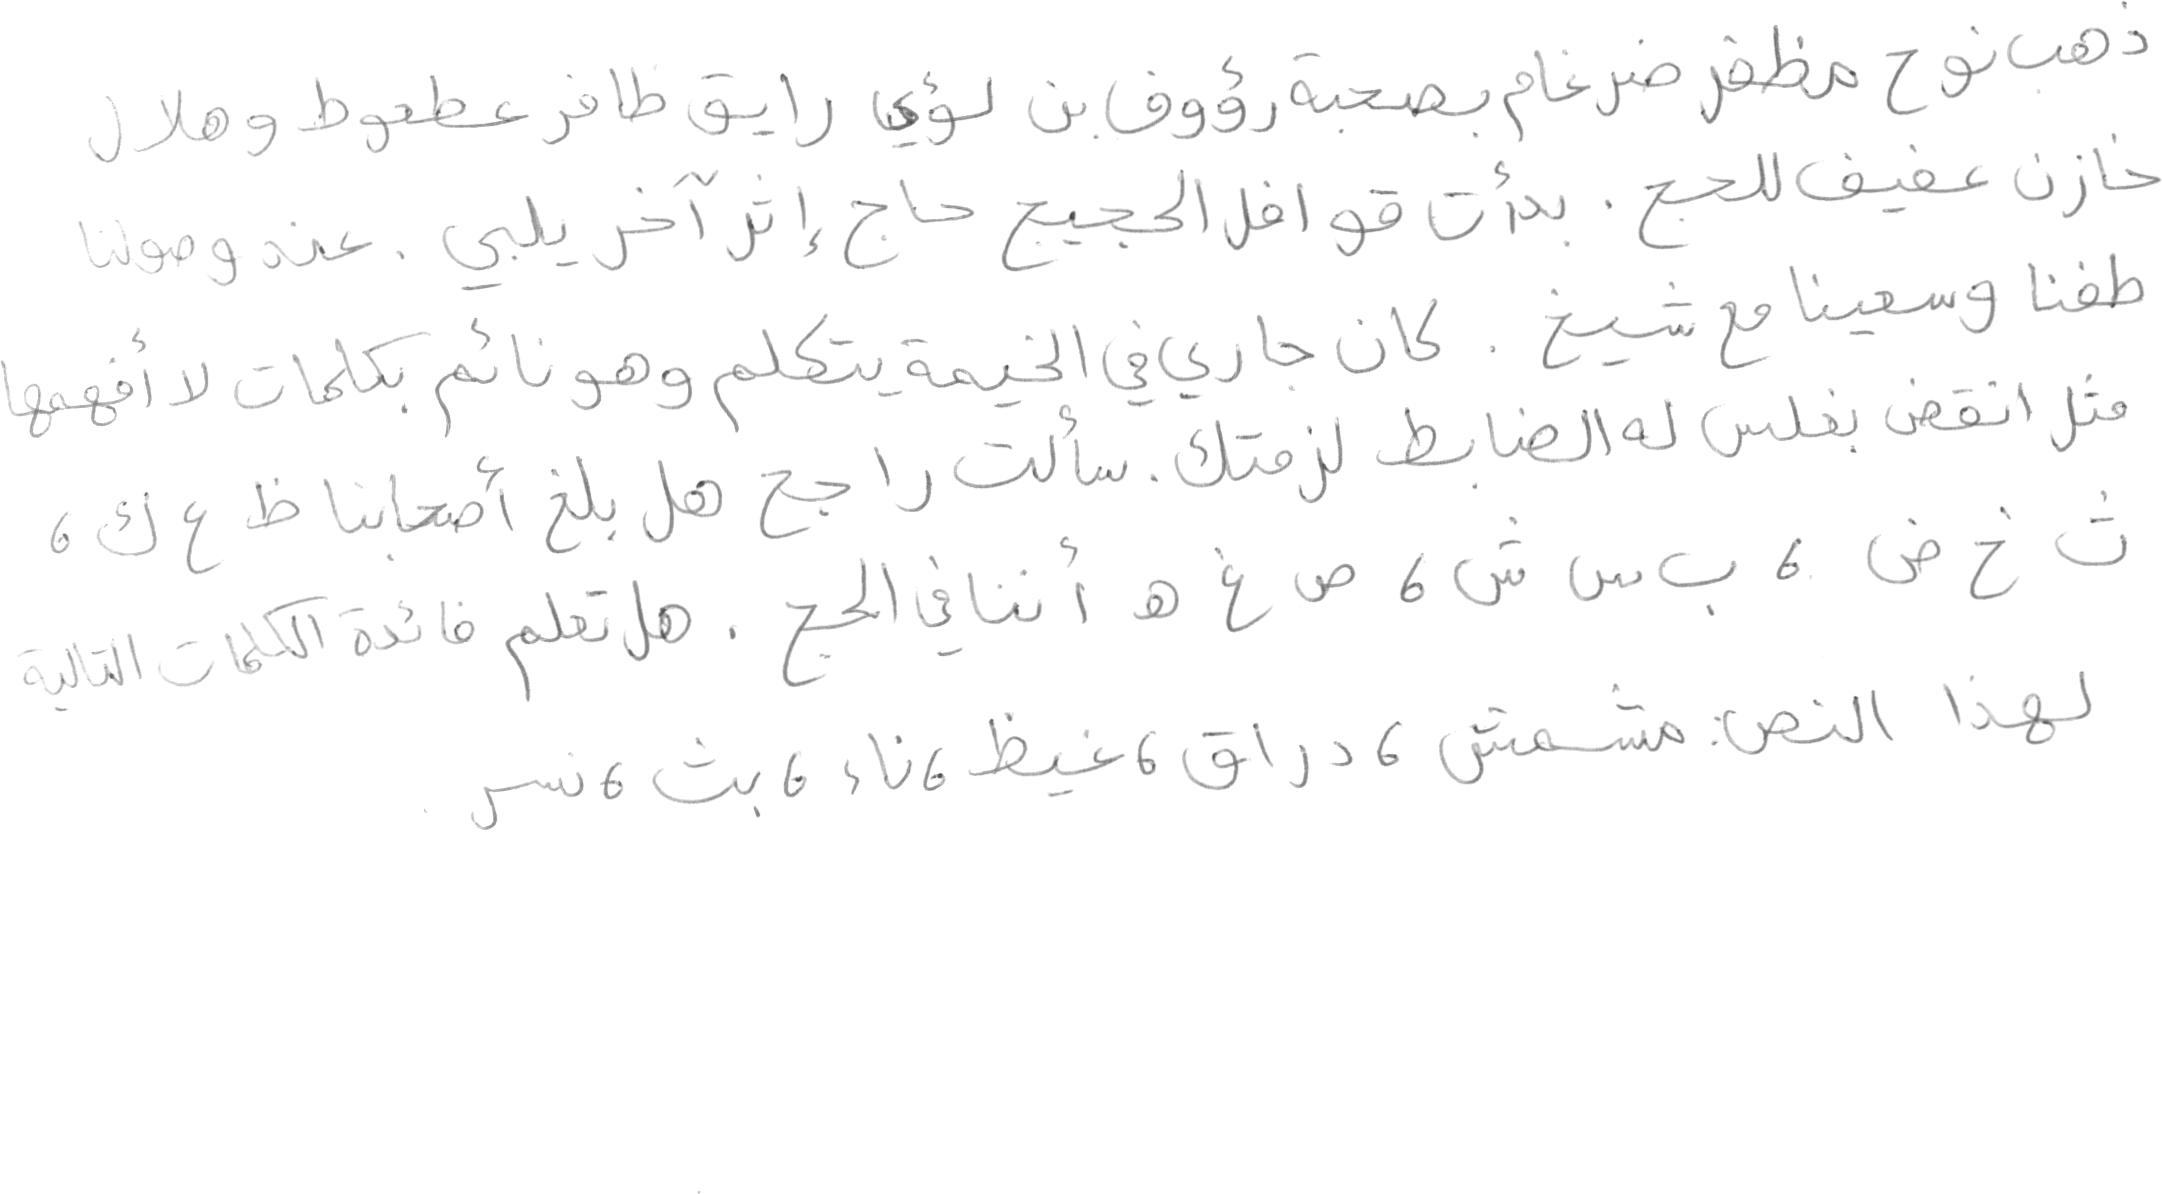 ذهب نوح مظفر ضرغام بصحبة رؤوف بن لؤي رايق ظافر عطعوط وهلال
خازن عفيف للحج . بدأت قوافل الحجيج حاج إثر آخر يلبي . عند وصولنا
طفنا وسعينا مع شيخ . كان جاري في الخيمة يتكلم وهو نائم بكلمات لا أفهمها
مثل انقض بغلس له الضابط لزمتك . سألت راجح هل بلغ أصحابنا ظ ع ك ،
ث خ ض ، ب س ش ، ص غ ه أننا في الحج . هل تعلم فائدة الكلمات التالية
لهذا النص: مشمش ، دراق ، غيظ ، ناء ، بث ، نسر .